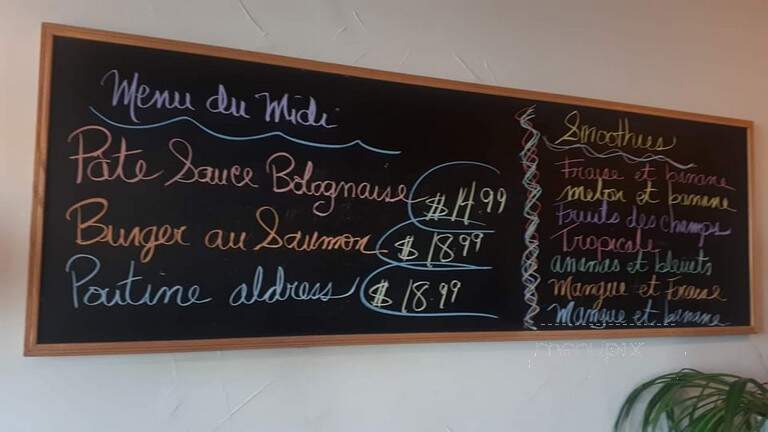 Menu du Midi
Pâte Sauce Bolognaise $14.99
Burger au Saumon $18.99
Poutine aldress $18.99
Smoothies
Fraise et banane
melon et banane
Fruits des champs
Tropicale
ananas et bleuets
Mangue et fraise
Mangue et banane